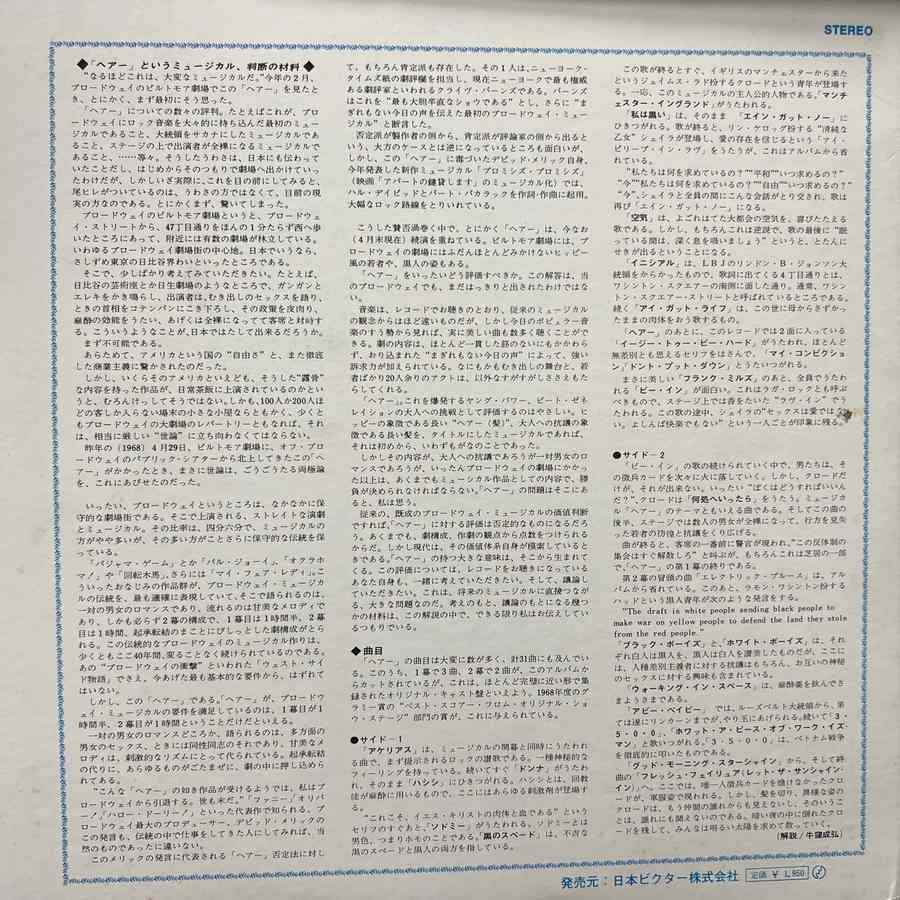 STEREO
◆「ヘアー」というミュージカル、判断の材料◆
"なるほどこれは、大変なミュージカルだ。"今年の2月、
ブロードウェイのビルトモア劇場でこの「ヘアー」を見たと
き、とにかく、まず最初にそう思った。
「ヘアー」についての数々の評判。たとえばこれが、ブロー
ドウェイにロック音楽を大々的に持ち込んだ最初のミュー
ジカルであること、大統領をサカナにしたミュージカルであ
ること、ステージの上で出演者が全裸になるミュージカルで
あること、……等々。そうしたうわさは、日本にも伝わって
いたことだし、はじめからそのつもりで劇場へ出かけていっ
たわけだが、しかしいざ実際に、これを目の前にしてみると、
尾ヒレがついているのは、うわさの方ではなくて、目前の現
実の方なのである。とにかくまず、驚いてしまった。
ブロードウェイのビルトモア劇場というと、ブロードウェ
イ・ストリートから、47丁目通りをほんの1分たらず西へ歩
いたところにあって、附近には有数の劇場が林立している。
いわゆるブロードウェイ劇場街の中心地。日本でいうなら、
さしずめ東京の日比谷界わいといったところである。
そこで、少しばかり考えてみていただきたい。たとえば、
日比谷の芸術座とか日生劇場のようなところで、ガンガンと
エレキをかき鳴らし、出演者は、むき出しのセックスを語り、
ときの首相をコテンパンにこき下ろし、その政策を皮肉り、
麻酔の効能をうたい、あげくは全裸になって客席と対峙す
る。こういうようなことが、日本ではたして出来るだろうか。
まず不可能である。
あらためて、アメリカという国の"自由さ"と、また徹底
した商業主義に驚かされたのだった。
しかし、いくらそのアメリカといえども、そうした"露骨"
な内容を持った作品が、日常茶飯に上演されているのかとい
うと、むろんけっしてそうではない。しかも、100人か200人ほ
どの客しか入らない場末の小さな小屋ならともかく、少くと
もブロードウェイの大劇場のレパートリーともなれば、それ
は、相当に厳しい"世論"に立ち向わなくてはならない。
昨年の（1968）4月29日、ビルトモア劇場に、オフ・ブロ
ードウェイのパブリック・シアターから北上してきたこの「ヘ
アー」がかかったとき、まさに世論は、ごうごうたる両極論
を、これにあびせたのだった。
いったい、ブロードウェイというところは、なかなかに保
守的な劇場街である。そこで上演される、ストレイトな演劇
とミュージカル。その比率は、四分六分で、ミュージカルの
方がやや多いが、その多い方がことさらに保守的な伝統を保
っている。
「パジャマ・ゲーム」とか「パル・ジョーイ」、「オクラホ
マ！」や「回転木馬」、さらには「マイ・フェア・レディ」。こ
ういったおなじみの作品群が、ブロードウェイ・ミュージカ
ルの伝統を、最も濃縮に表現していて、そこで語られるのは、
一対の男女のロマンスであり、流れるのは甘美なメロディで
あり、しかも必らず2幕の構成で、1幕目は1時間半、2幕
目は1時間、起承転結のまことにぴしっとした劇構成がとら
れる。この伝統的なブロードウェイのミュージカル作りは、
少くともここ40年間、変ることなく続けられているのである。
あの"ブロードウェイの衝撃"といわれた「ウェスト・サイ
ド物語」でさえ、今あげた最も基本的な要件から、はずれて
はいない。
しかし、この「ヘアー」である。「ヘアー」が、ブロードウ
ェイ・ミュージカルの要件を満足しているのは、1幕目が1
時間半、2幕目が1時間ということだけだといえる。
一対の男女のロマンスどころか、語られるのは、多方面の
男女のセックス、ときには同性同志のそれであり、甘美なメ
ロディは、刺激的なリズムにとって代られている。起承転結
の代りに、あらゆるものがごたまぜに、劇の中に押し込めら
れてある。
"こんな「ヘアー」の如き作品が受けるようでは、私はブ
ロードウェイから引退する。世も末だ。"「ファニー」、「オリバ
ー！」、「ハロー・ドーリー！」といった代表作で知られる、ブ
ロードウェイ最大のプロデューサー、デビッド・メリックの
この発言も、伝統の中で仕事をしてきた人にしてみれば、当
然のものであったに違いない。
このメリックの発言に代表される「ヘアー」否定派に対し
て、もちろん肯定派も存在した。その1人は、ニューヨーク・
タイムズ紙の劇評欄を担当し、現在ニューヨークで最も権威
ある劇評家といわれるクライヴ・バーンズである。バーンズ
はこれを"最も大胆半直なショウである"とし、さらに"ま
ぎれもない今日の声を伝えた最初のブロードウェイ・ミュー
ジカル"と断言した。
否定派が製作者の側から、肯定派が評論家の側から出ると
いう、大方のケースとは逆になっているところも面白いが、
しかし、この「ヘアー」に毒づいたデビッド・メリック自身、
今年発表した新作ミュージカル「プロミシズ・プロミシズ」
（映画「アパートの鍵貸します」のミュージカル化）では、
ハル・デイビッドとバート・バカラックを作詞・作曲に起用。
大幅なロック路線をとりいれている。
こうした賛否渦巻く中で、とにかく「ヘアー」は、今なお
（4月末現在）続演を重ねている。ビルトモア劇場には、ブ
ロードウェイの劇場にはふだんほとんどみかけないヒッピー
風の若者や、黒人の姿もある。
「ヘアー」をいったいどう評価すべきか。この解答は、当
のブロードウェイでも、まだはっきりと出されたわけではな
い。
音楽は、レコードでお聴きのとおり、従来のミュージカル
の観念からはほど遠いものだが、しかし今日のポピュラー音
楽のすう勢から見れば、実に美しい曲も数多く聴くことがで
きる。劇の内容は、ほとんど一貫した筋のないにもかかわら
ず、おり込まれた"まぎれもない今日の声"によって、強い
訴求力が加えられている。なにもかもむき出しの舞台と、若
者ばかり20人余りのアクトは、以外なすがすがしささえもた
らしてくれる。
「ヘアー」。これを爆発するヤング・パワー、ビート・ゼネ
レイションの大人への挑戦として評価するのはやさしい。ヒ
ッピーの象徴である長い"ヘアー（髪）"、大人への抗議の象
徴である長い髪を、タイトルにしたミュージカルであれば、
それは初めから、いわずもがなのことであった。
しかしその内容が、大人への抗議であろうが一対男女のロ
マンスであろうが、いったんブロードウェイの劇場にかかっ
た以上は、あくまでもミュージカル作品としての内容で、勝
負が決められなければならない。「ヘアー」の問題はそこにあ
ると、私は思う。
従来の、既成のブロードウェイ・ミュージカルの価値判断
ですれば、「ヘアー」に対する評価は否定的なものになるだろ
う。あくまでも、劇構成、作劇の観点から点数をつけられる
からだ。しかし現代は、その価値体系自身が模索していると
きである。「ヘアー」の持つ大きな意味は、そこから生まれて
くる。この評価については、レコードをお聴きになっている
あなた自身も、一緒に考えていただきたい。そして、議論し
ていただきたい。これは、将来のミュージカルに直接つなが
る、大きな問題なのだ。考えのもと、議論のもとになる幾つ
かの材料は、この解説の中で、できる限り私はお伝えしてい
るつもりでいる。
◆曲目
「ヘアー」の曲目は大変に数が多く、計31曲にも及んでい
る。このうち、1幕で3曲、2幕で2曲が、このアルバムか
らカットされているが、これは、ほとんど完璧に近い形で集
録されたオリジナル・キャスト盤といえよう。1968年度のグ
ラミー賞の"ベスト・スコアー・フロム・オリジナル・ショ
ウ・ステージ"部門の賞が、これに与えられている。
●サイド－1
「アケリアス」は、ミュージカルの開幕と同時にうたわれ
る曲で、まず提示されるロックの讃歌である。一種神秘的な
フィーリングを持っている。続いてすぐ「ドンナ」がうたわ
れ、そのまま「ハシシ」にひきつがれる。ハシシとは、回教
徒が麻酔に用いるもので、ここにはあらゆる刺激剤が登場す
る。
"これこそ、イエス・キリストの肉体と血である"という
セリフのすぐあと、「ソドミー」がうたわれる。ソドミーとは
男色、つまりホモのことである。「黒のスペード」は、不吉な
黒のスペードと黒人の両方を指している。
この歌が終るとすぐ、イギリスのマンチェスターから来た
というジェイムス・ラド扮するクロードという青年が登場す
る。一応、このミュージカルの主人公的人物である。「マンチ
ェスター・イングランド」がうたわれる。
「私は黒い」は、そのまま「エイン・ガット・ノー」に
ひきつがれる。歌が終ると、リン・ケロッグ扮する"清純な
乙女"シェイラが登場し、愛の存在を信じるという「アイ・
ビリーブ・イン・ラヴ」をうたうが、これはアルバムから省
れている。
"私たちは何を求めているの？""平和""いつ求めるの？"
"今""私たちは何を求めているの？""自由""いつ求めるの？"
"今"。シェイラと全員の間にこんな会話がとり交され、歌は
再び「エイン・ガット・ノー」になる。
「空気」は、よごれはてた大都会の空気を、喜びたたえる
歌である。しかし、もちろんこれは逆説で、歌の最後に"眠
っている間は、深く息を吸いましょう"というと、とたんに
せき出るということになる。
「イニシアル」は、LBJのリンドン・B・ジョンソン大
統領をからかったもので、歌詞に出てくる4丁目通りとは、
ワシントン・スクエアーの南側に面した通り。通常、ワシン
トン・スクエアー・ストリートと呼ばれているところである。
続く「アイ・ガット・ライフ」は、この世に母からさずかっ
たままの肉体をおう歌するもの。
「ヘアー」のあとに、このレコードでは2面に入っている
「イージー・トゥー・ビー・ハード」がうたわれ、ほとんど
無差別とも思えるセリフをはさんで、「マイ・コンビクショ
ン」、「ドント・プット・ダウン」とうたいつがれる。
まさに美しい「フランク・ミルズ」のあと、全員でうたわ
れる「ビー・イン」が面白い。これはラガ・ロックとも呼ぶ
べきもので、ステージ上では香をたいた"ラヴ・イン"でう
たわれる。この歌の途中、シェイラの"セックスは愛ではな
い。よしんば快楽でもない"という一人ごとが印象に残る。
●サイド－2
「ビー・イン」の歌の続けられていく中で、男たちは、そ
の徴兵カードを次々に火に落していく。しかし、クロードだ
けが、それが出来ない。いったい"ぼくはどうすればいいん
だ？"、クロードは「何処へいったら」をうたう。ミュージカ
ル「ヘアー」のテーマともいえる曲である。そしてこの曲の
後半、ステージでは数人の男女が全裸になって、行方を見失
った若者の彷徨と抗議をくり広げる。
曲が終ると、客席の一番前に警官が現われ、"この反体制の
集会はすぐ解散しろ"と叫ぶが、もちろんこれは芝居の一部
で、「ヘアー」の第1幕の終りである。
第2幕の冒頭の曲「エレクトリック・ブルース」は、アル
バムから省れている。このあと、ラモン・ワシントン扮する
ハッドという黒人青年が次のような発言をする。
"The draft is white people sending black people to
make war on yellow people to defend the land they stole
from the red people."
「ブラック・ボーイズ」と、「ホワイト・ボーイズ」は、そ
れぞれ白人は黒人を、黒人は白人を讃美したものだが、ここに
は、人種差別主義者に対する抗議はもちろん、お互いの神秘
のセックスに対する興味も含まれている。
「ウォーキング・イン・スペース」は、麻酔薬を飲んでさ
まようさまである。
「アビー・ベイビー」では、ルーズベルト大統領から、果
ては遂にリンカーンまでが、やり玉にあげられる。続いて「3・
5・0・0」、「ホワット・ア・ピース・オブ・ワーク・イズ・
マン」と歌いつがれる。「3・5・0・0」は、ベトナム戦争
を徹底的に叩いたものである。
「グッド・モーニング・スターシャイン」から、そして終
曲の「フレッシュ・フェイリュア（レット・ザ・サンシャイン・
イン）」へ。ここでは、唯一人徴兵カードを焼けなかったクロー
ドが、軍服姿で現われる。しかし、髪を切り、異様な姿の
クロードは、もう仲間の誰れからも見えないし、そのいうこ
とは、誰れにも聞えないのである。暗い夜の中に倒れたクロ
ードを残して、みんなは明るい太陽を求めて歌っていく。
（解説／牛窪成弘）
発売元：日本ビクター株式会社 定価 ¥ 1,850